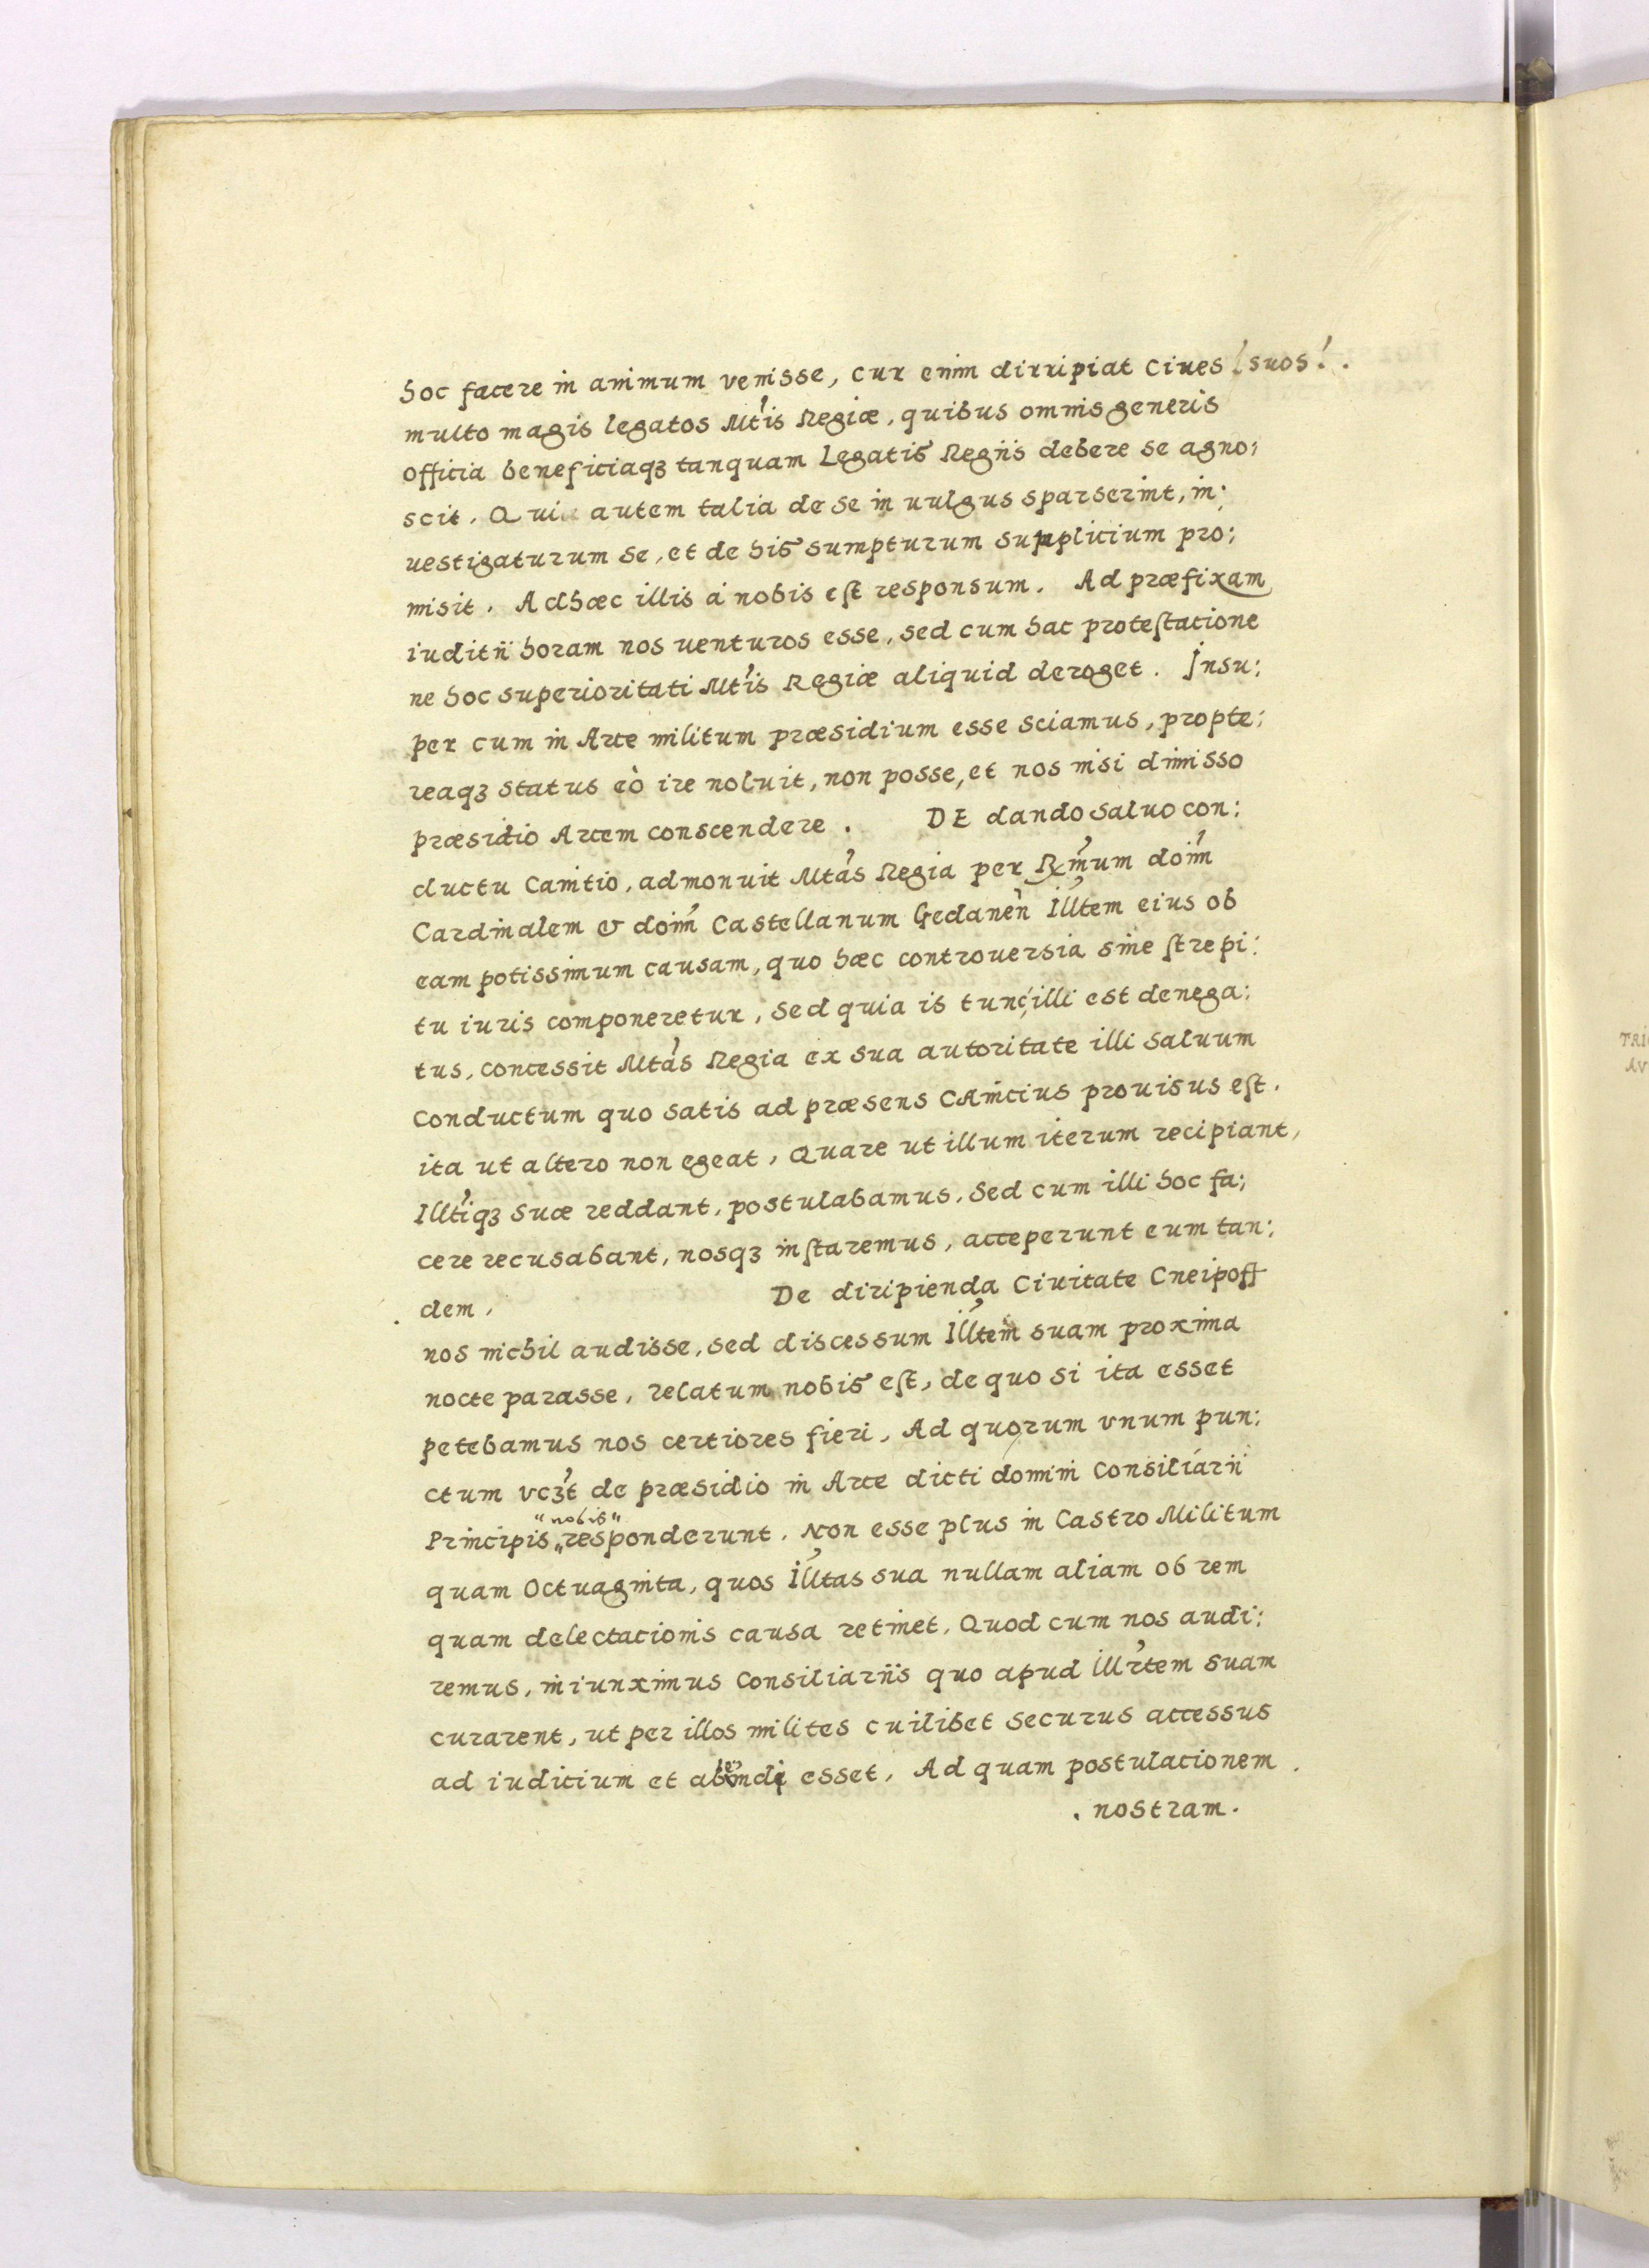 hoc facere in animum venisse, cur enim dirripiat ciues suos.
multo magis legatos Mtis Regiæ, quibus omnis generis
officia beneficiaqꝫ tanquam Legatis Regiis debere se agno:
scit. Qui autem talia de se in uulgus sparserint, in:
uestigaturum se, et de his sumpturum supplicium pro:
misit. Ad hæc illis á nobis est responsum. Ad præfixam
iuditii horam nos uenturos esse, sed cum hac protestatione
ne hoc superioritati Mtis Regiæ aliquid deroget. Insu:
per cum in Arce militum præsidium esse sciamus, propte:
reaqꝫ status eò ire noluit, non posse, et nos nisi dimisso
præsidio Arcem conscendere. DE dando saluo con:
ductu Camtio, admonuit Mtas Regia per Rmum doim
Cardinalem & doim Castellanum Gedanen Illtem eius ob
eam potissimum causam, quo hæc controuersia sine strepi:
tu iuris componeretur, sed quia is tunc illi est denega:
tus, concessit Mtas Regia ex sua autoritate illi saluum
conductum quo satis ad præsens CAmcius prouisus est.
ita ut altero non egeat, Quare ut illum iterum recipiant,
Illtiqꝫ suæ reddant, postulabamus. Sed cum illi hoc fa:
cere recusabant, nosqꝫ instaremus, acceperunt eum tan:
dem. De diripienda Ciuitate Cneipoff
nos nichil audisse, sed discessum Illtem suam proxima
nocte parasse, relatum nobis est, de quo si ita esset
petebamus nos certiores fieri, Ad quorum vnum pun:
ctum vcꝫt de præsidio in Arce dicti domini Consiliárii
"nobis"
Principis „responderunt. Non esse plus in Castro Militum
quam Octuaginta, quos Illtas sua nullam aliam ob rem
quam delectacionis causa retinet. Quod cum nos audi:
remus, iniunximus Consiliariis quo apud Illrtem suam
curarent, ut per illos milites cuilibet securus accessus
ad iuditium et esset, Ad quam postulacionem
. nostram.